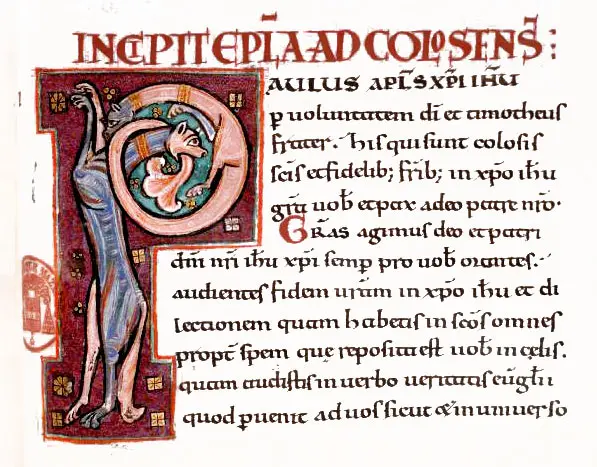 INCIPIT EPL̅A AD COLOSENS̅:
PAULUS APL̅S XP̅I IH̅U
p̱ uoluntatem di̅ et timotheus
frater. his qui sunt colosis
sc̅is et fidelib; fr̅ib; in xp̅o ih̅u
gr̅a uob̅ et pax a deo patre nr̅o.
GRAS agimus deo et patri
dn̅i nr̅i ih̅u xp̅i semp̱ pro uob̅ orantes.
audientes fidem ur̅am in xp̅o ih̅u et di
lectionem quam habetis in sc̅os omnes
propt̅ spem que reposita est uob̅ in celis.
quam audistis in uerbo ueritatis eu̅gl̅ii
quod p̱uenit ad uos sicut & in uniuerso